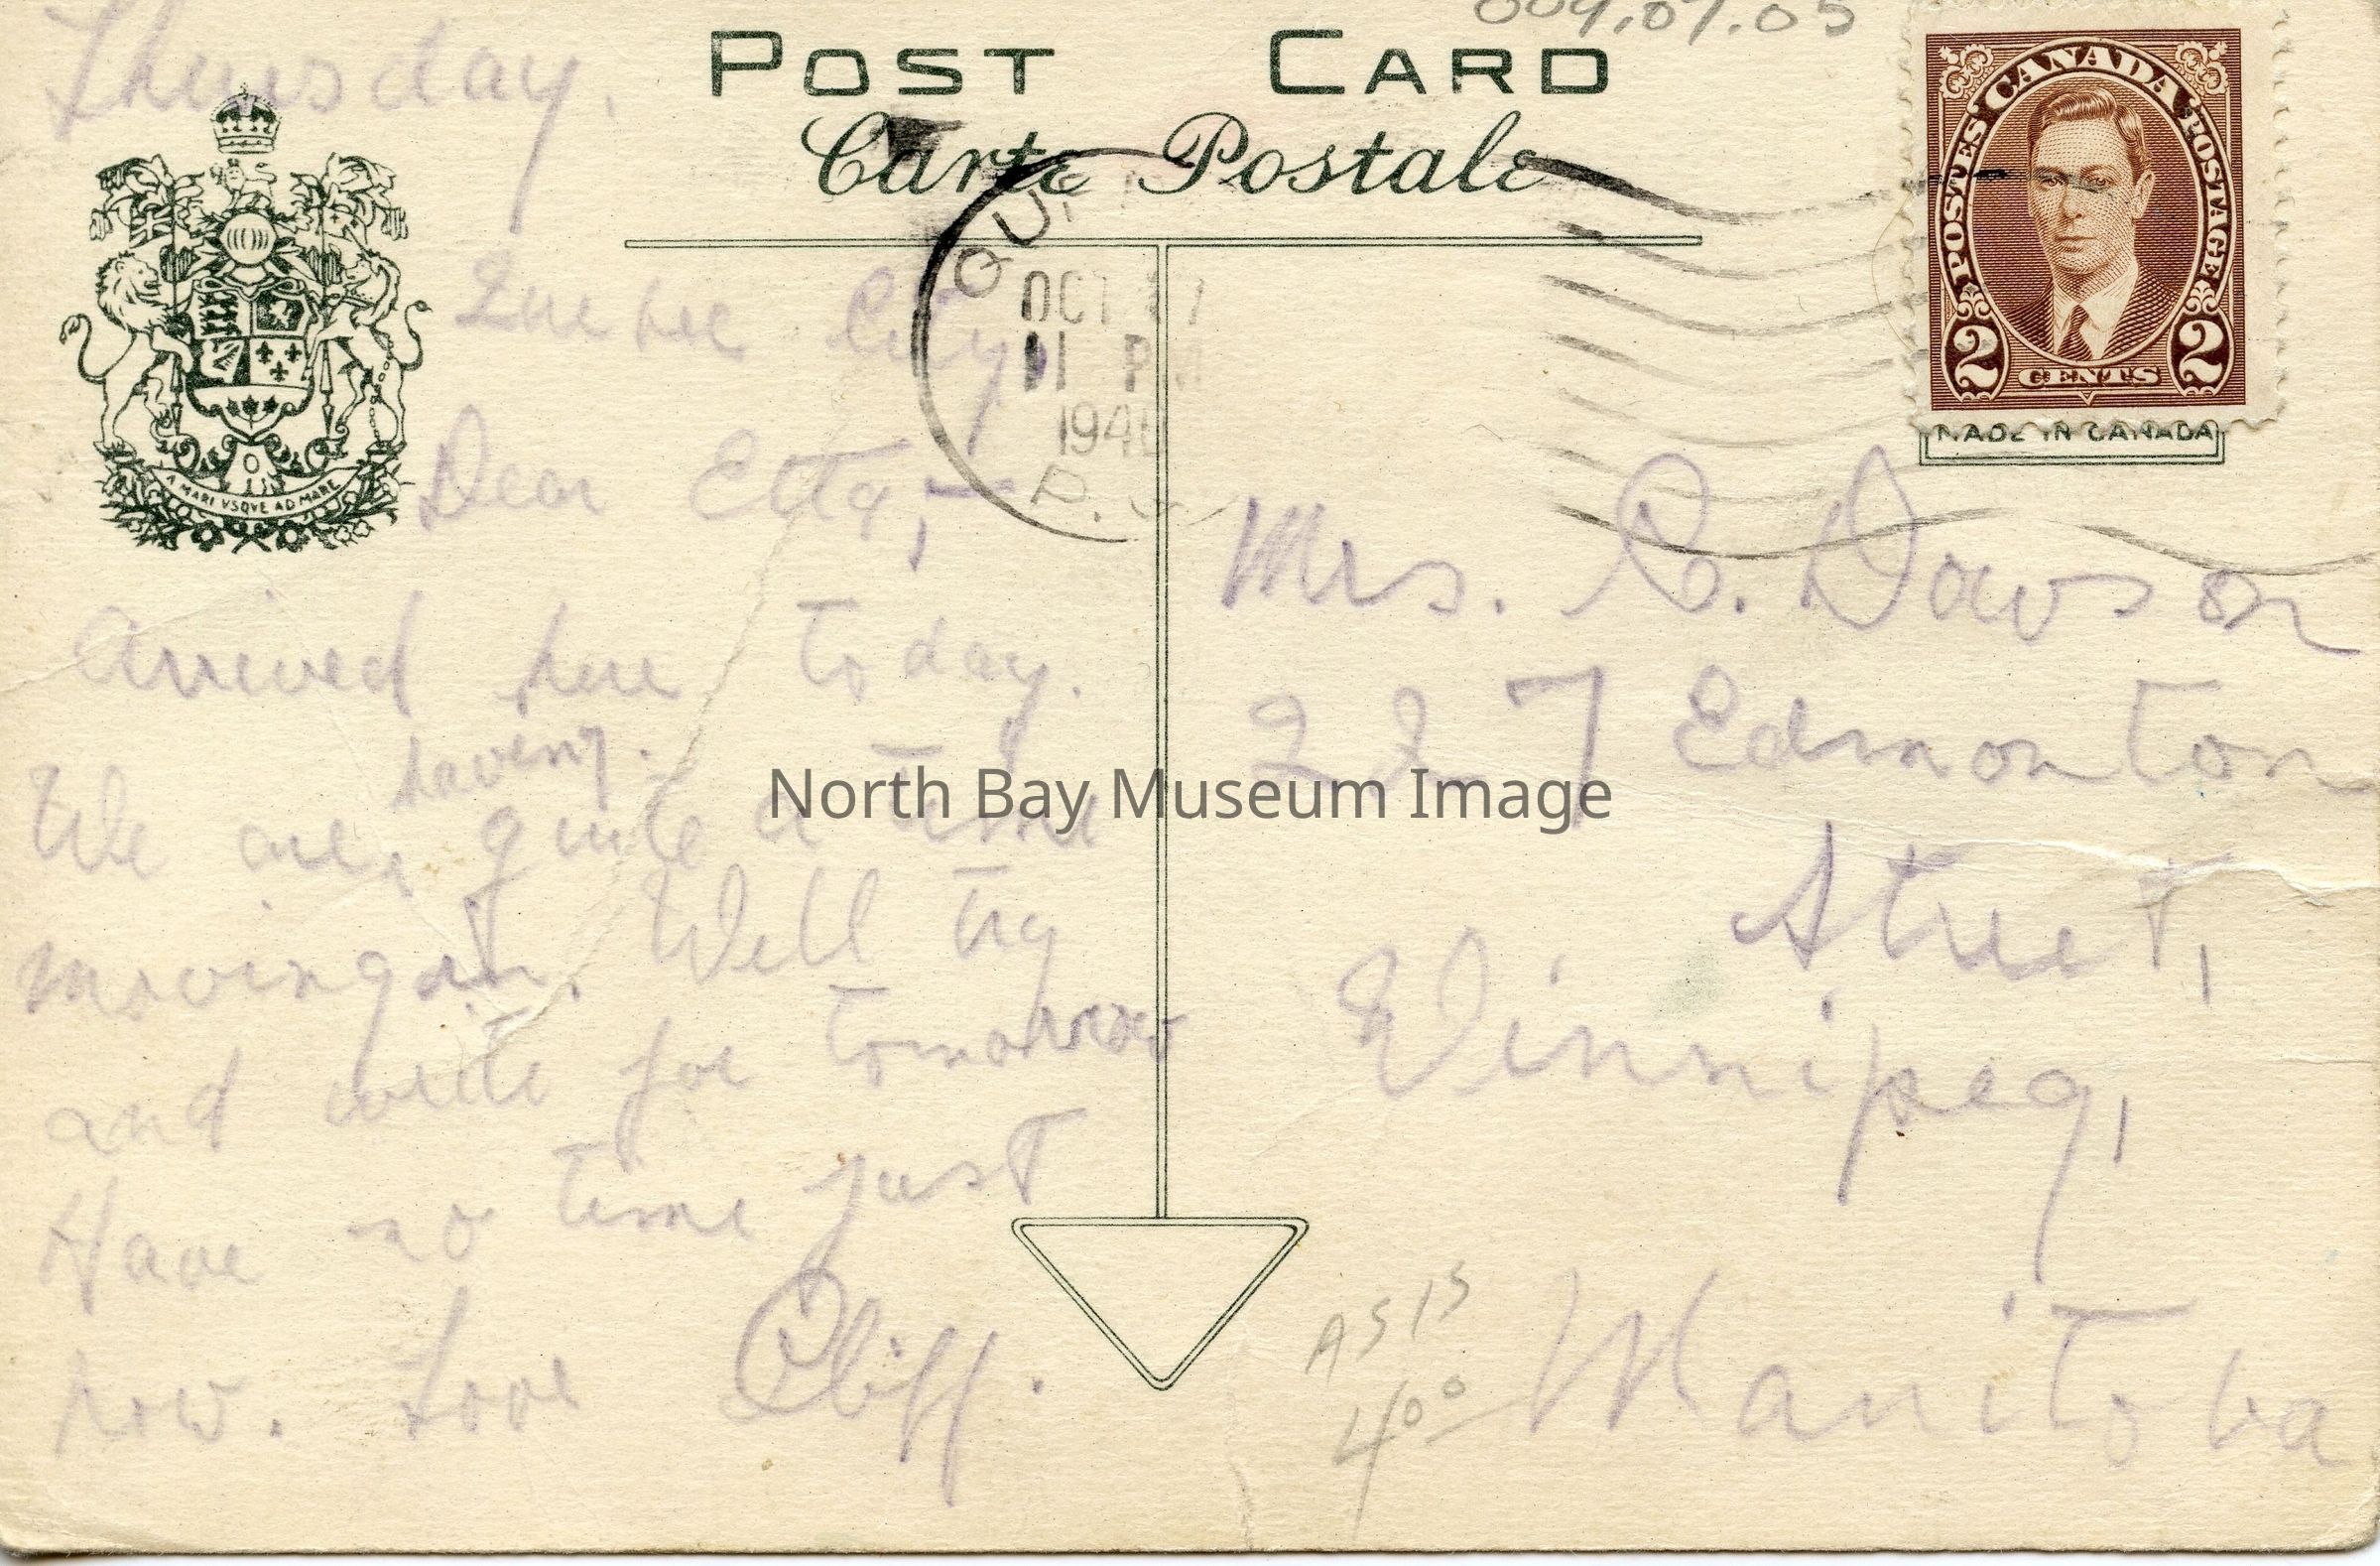 009.07.05
POST CARD
Carte Postale
CANADA
POSTES POSTAGE
2 CENTS 2
MADE IN CANADA
QUE
OCT
11 P
194
P.
A MARI VSQVE AD MARE
Thursday.
Quebec City
Dear Etta,—
Arrived here today.
having
We are quite a time
moving in. Will try
and write for tomorrow
Have no time just
now. Love Cliff.
Mrs. C. Dawson
227 Edmonton
Street,
Winnipeg,
Manitoba
AS IS
4⁰⁰
North Bay Museum Image